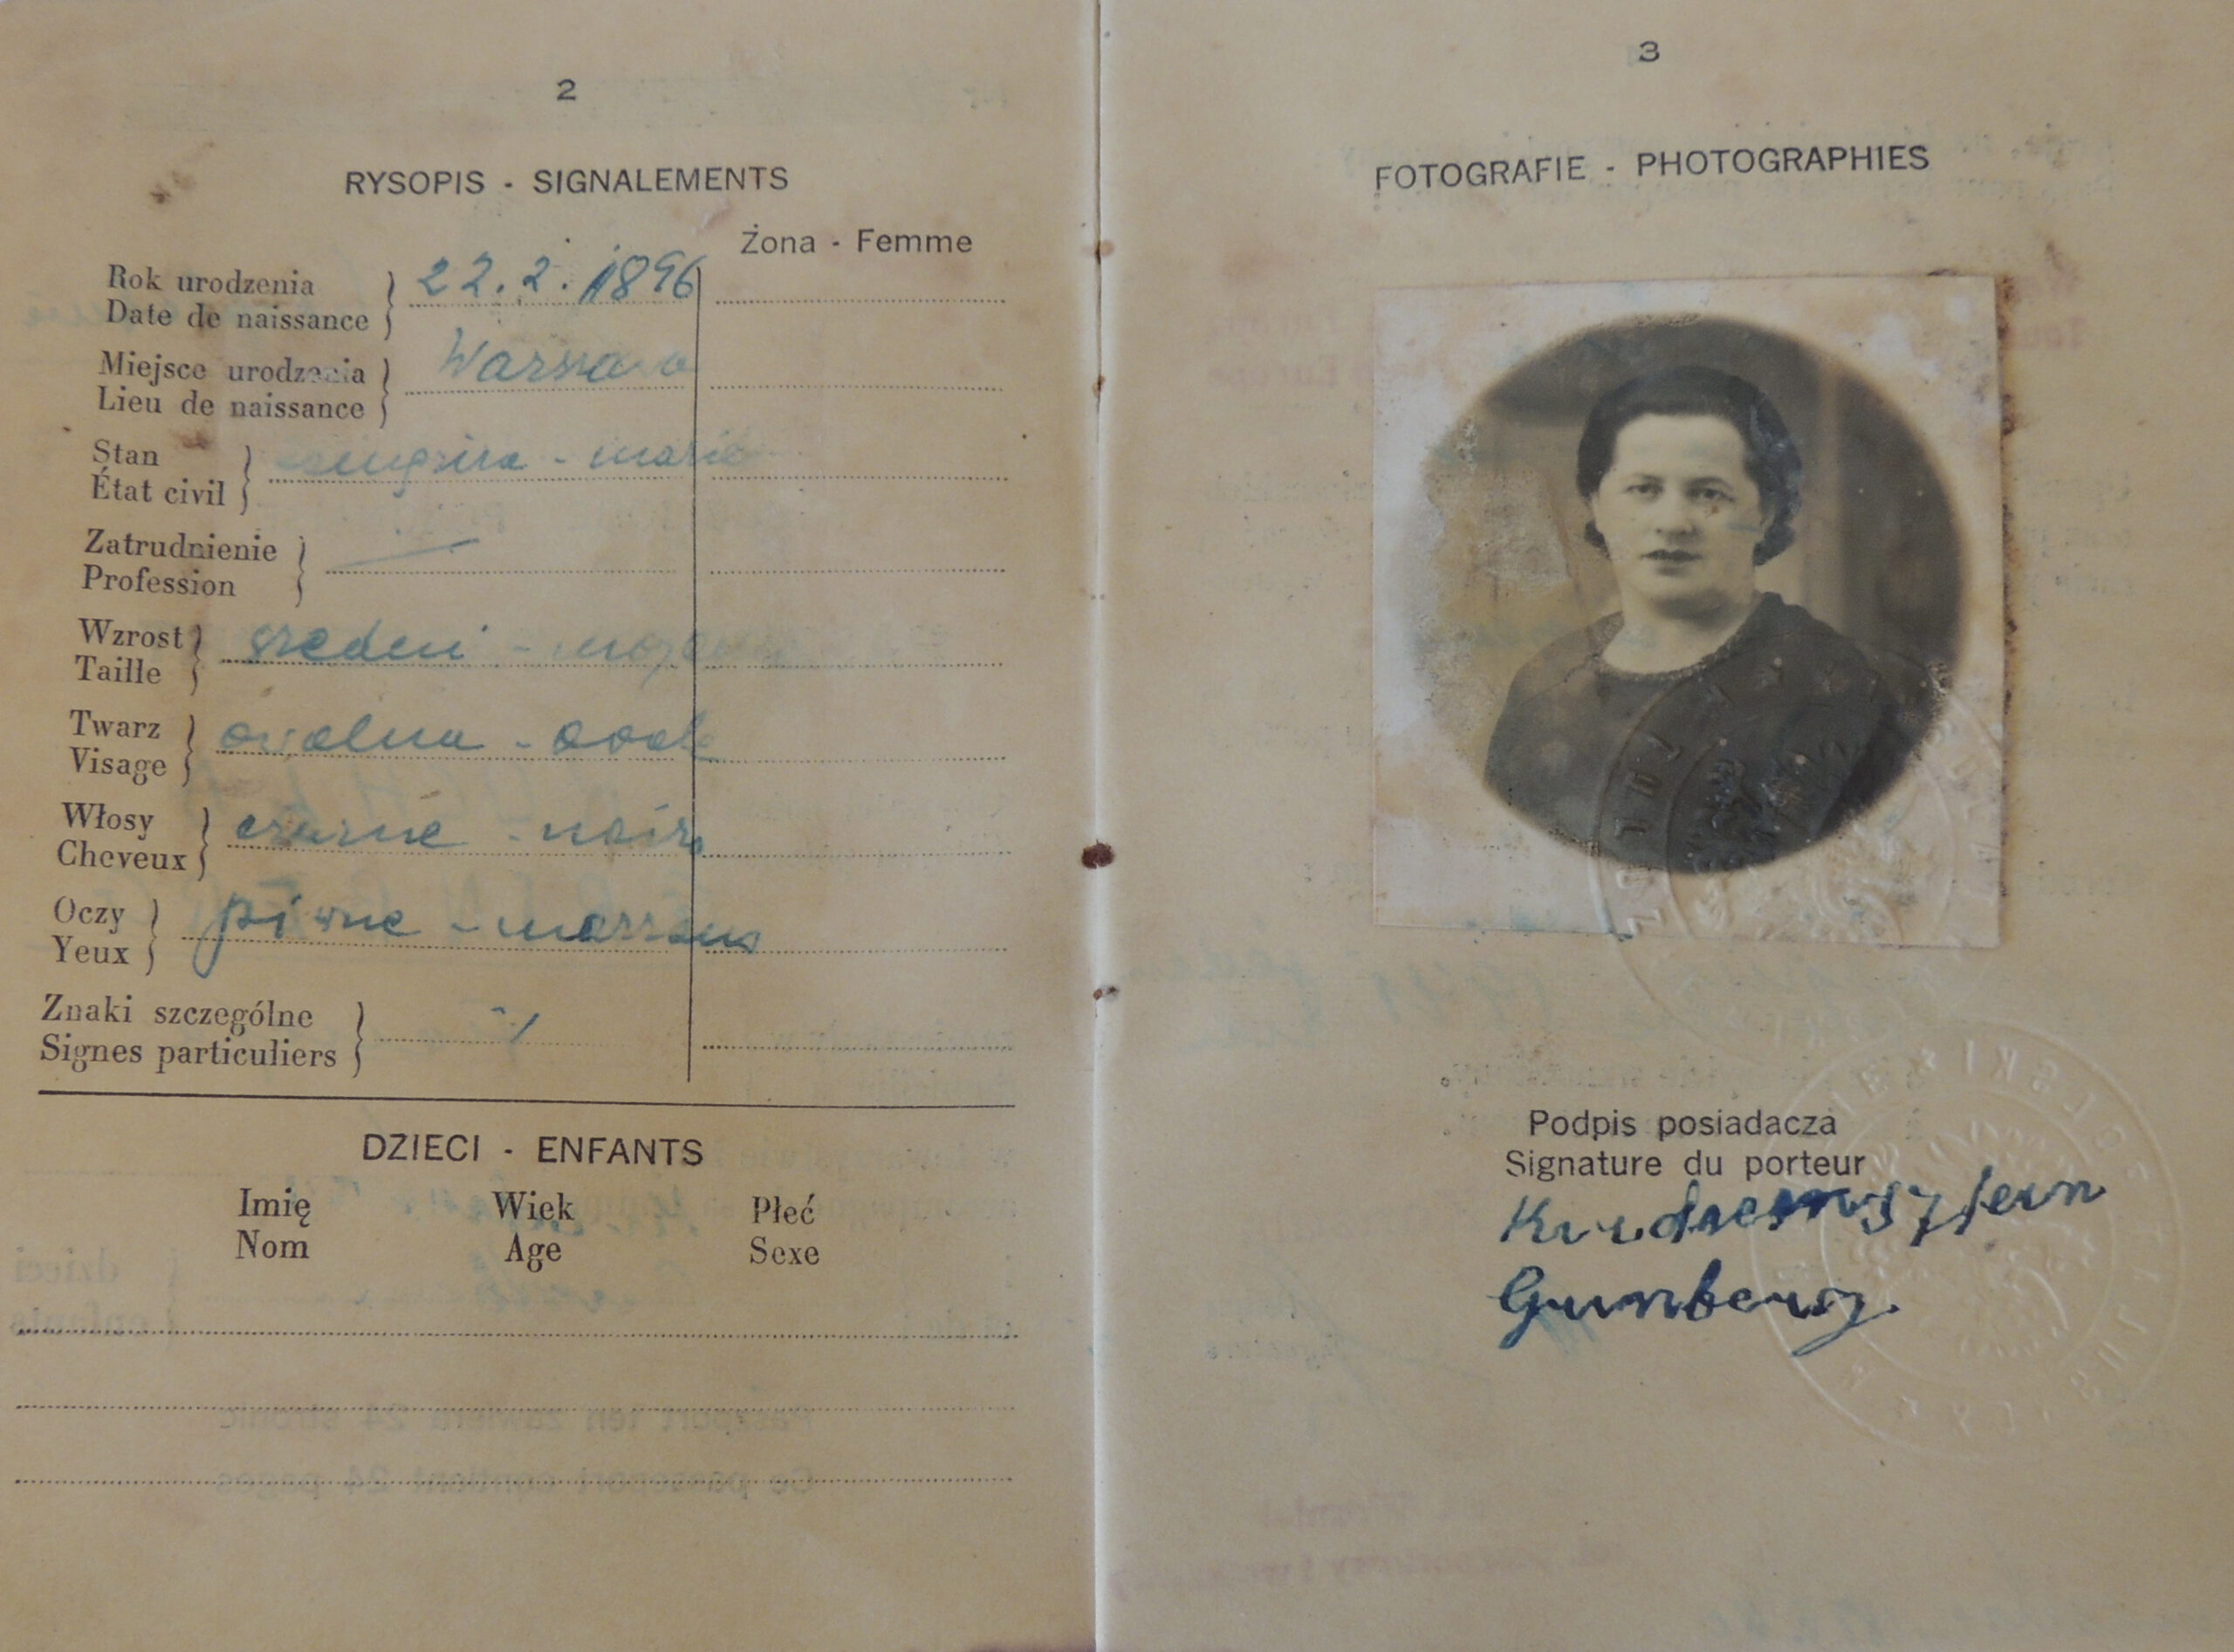 2
RYSOPIS - SIGNALEMENTS
Żona - Femme
Rok urodzenia
Date de naissance
22.2.1896
Miejsce urodzenia
Lieu de naissance
Warszawa
Stan
État civil
- marié
Zatrudnienie
Profession
Wzrost
Taille
średni -
Twarz
Visage
owalna - ovale
Włosy
Cheveux
czarne - noirs
Oczy
Yeux
piwne - marrons
Znaki szczególne
Signes particuliers
DZIECI - ENFANTS
Imię Wiek Płeć
Nom Age Sexe
3
FOTOGRAFIE - PHOTOGRAPHIES
Podpis posiadacza
Signature du porteur